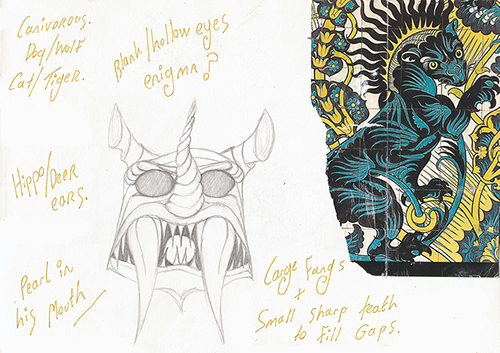 Canivorous.
Dog/Wolf
Cat/Tiger.
Blank/hollow eyes
enigma?
Hippo/Deer
ears.
Pearl in
his Mouth
Large Fangs
+
Small sharp teath
to Fill Gaps.